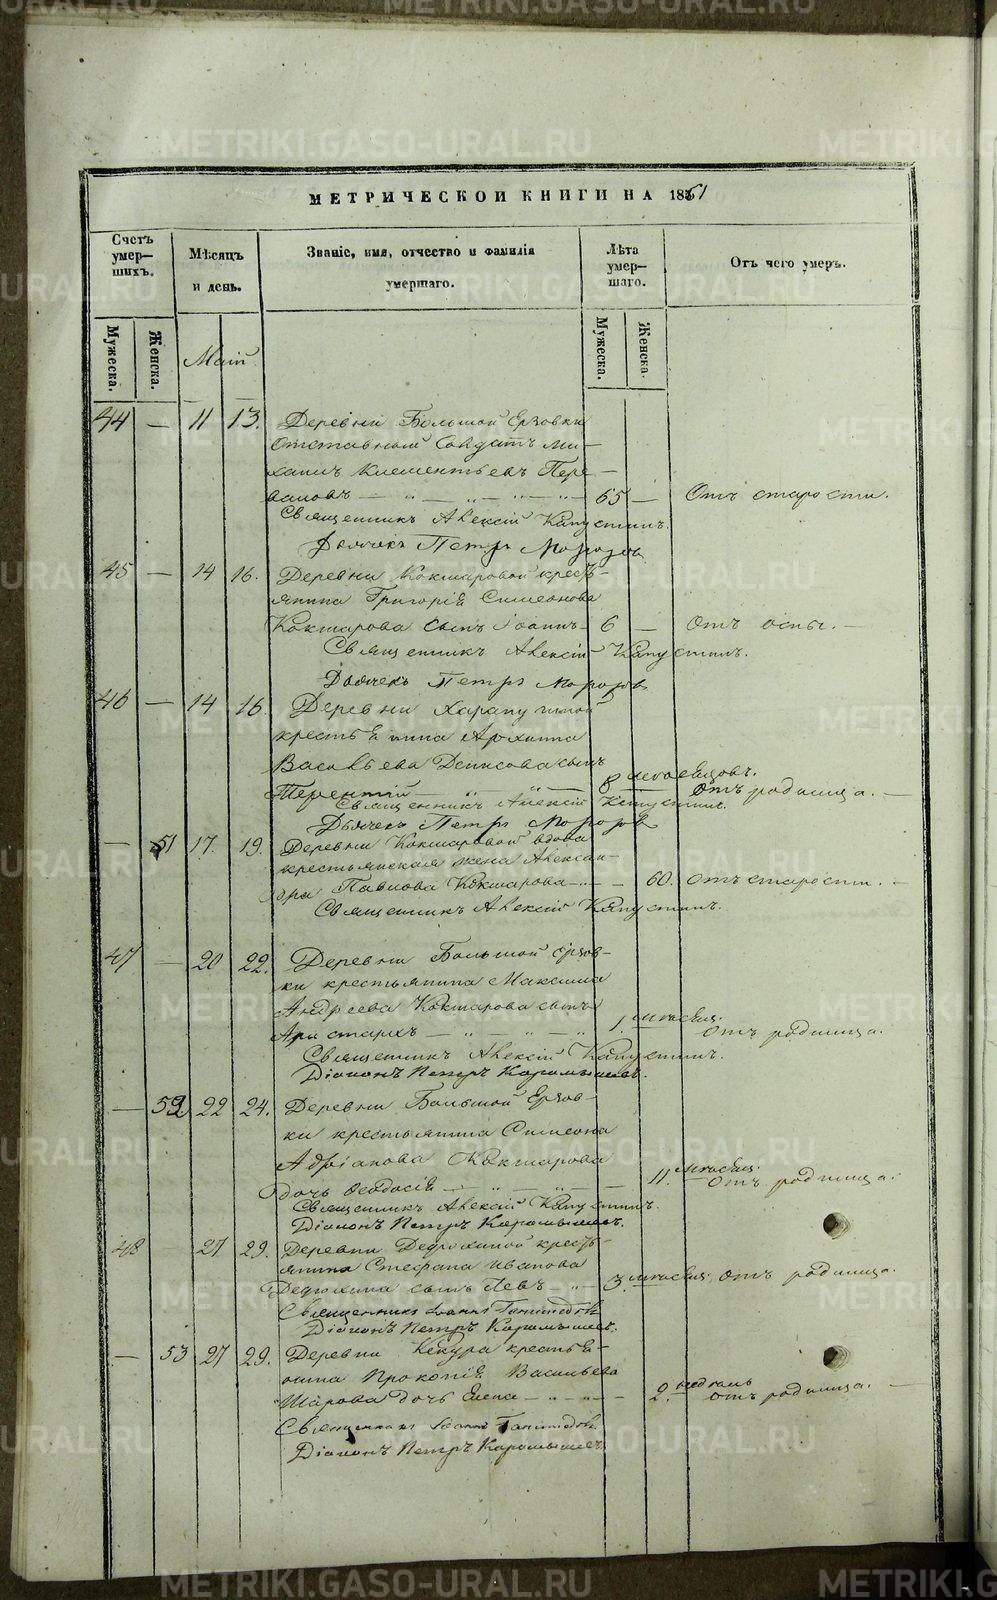 METRIKI.GASO-URAL.RU
МЕТРИЧЕСКОЙ КНИГИ НА 1861
Счетъ умер-шихъ.
Мѣсяцъ и день.
Званіе, имя, отчество и фамилія умершаго.
Лѣта умер-шаго.
Отъ чего умеръ.
Мужеска. Женска.
Маій
Мужеска. Женска.
44 — 11 13. Деревни Большой Ерзовки
отставный Солдатъ Ми-
хаилъ Клементьевъ Пере-
валовъ — 65 — Отъ старости.
Священникъ Алексій Капустинъ.
Дьячекъ Петръ Морозовъ
45 — 14 16. Деревни Кокшаровой кресть-
янина Григорія Симеонова
Кокшарова сынъ Іоаннъ 6 — Отъ оспы. —
Священникъ Алексій Капустинъ.
Дьячекъ Петръ Морозовъ
46 — 14 16. Деревни
крестьянина Архипа
Васильева Денисова сынъ
Терентій — 8 месяцовъ. отъ родимца. —
Священникъ Алексій Капустинъ.
Дьячекъ Петръ Морозовъ
— 51 17. 19. Деревни Кокшаровой вдова
крестьянская жена Алексан-
дра Павлова Кокшарова — 60. отъ старости. —
Священникъ Алексій Капустинъ.
47 — 20 22. Деревни Большой Ерзов-
ки крестьянина Максима
Андреева Кокшарова сынъ
Аристархъ — 1. месяц. отъ родимца.
Священникъ Алексій Капустинъ.
Діаконъ Петръ Карамышевъ.
— 52 22 24. Деревни Большой Ерзов-
ки крестьянина Симеона
Адріанова Кокшарова
дочь Ѳеодосія — 11. месяц. отъ родимца.
Священникъ Алексій Капустинъ.
Діаконъ Петръ Карамышевъ.
48 — 27 29. Деревни Дедюхиной кресть-
янина Стефана Иванова
Дедюхина сынъ Левъ — 3. месяц. отъ родимца.
Священникъ Іоаннъ
Діаконъ Петръ Карамышевъ.
— 53 27 29. Деревни Кекура крестья-
нина Прокопія Васильева
Шарова дочь Елена — 2. недель отъ родимца. —
Священникъ Іоаннъ
Діаконъ Петръ Карамышевъ